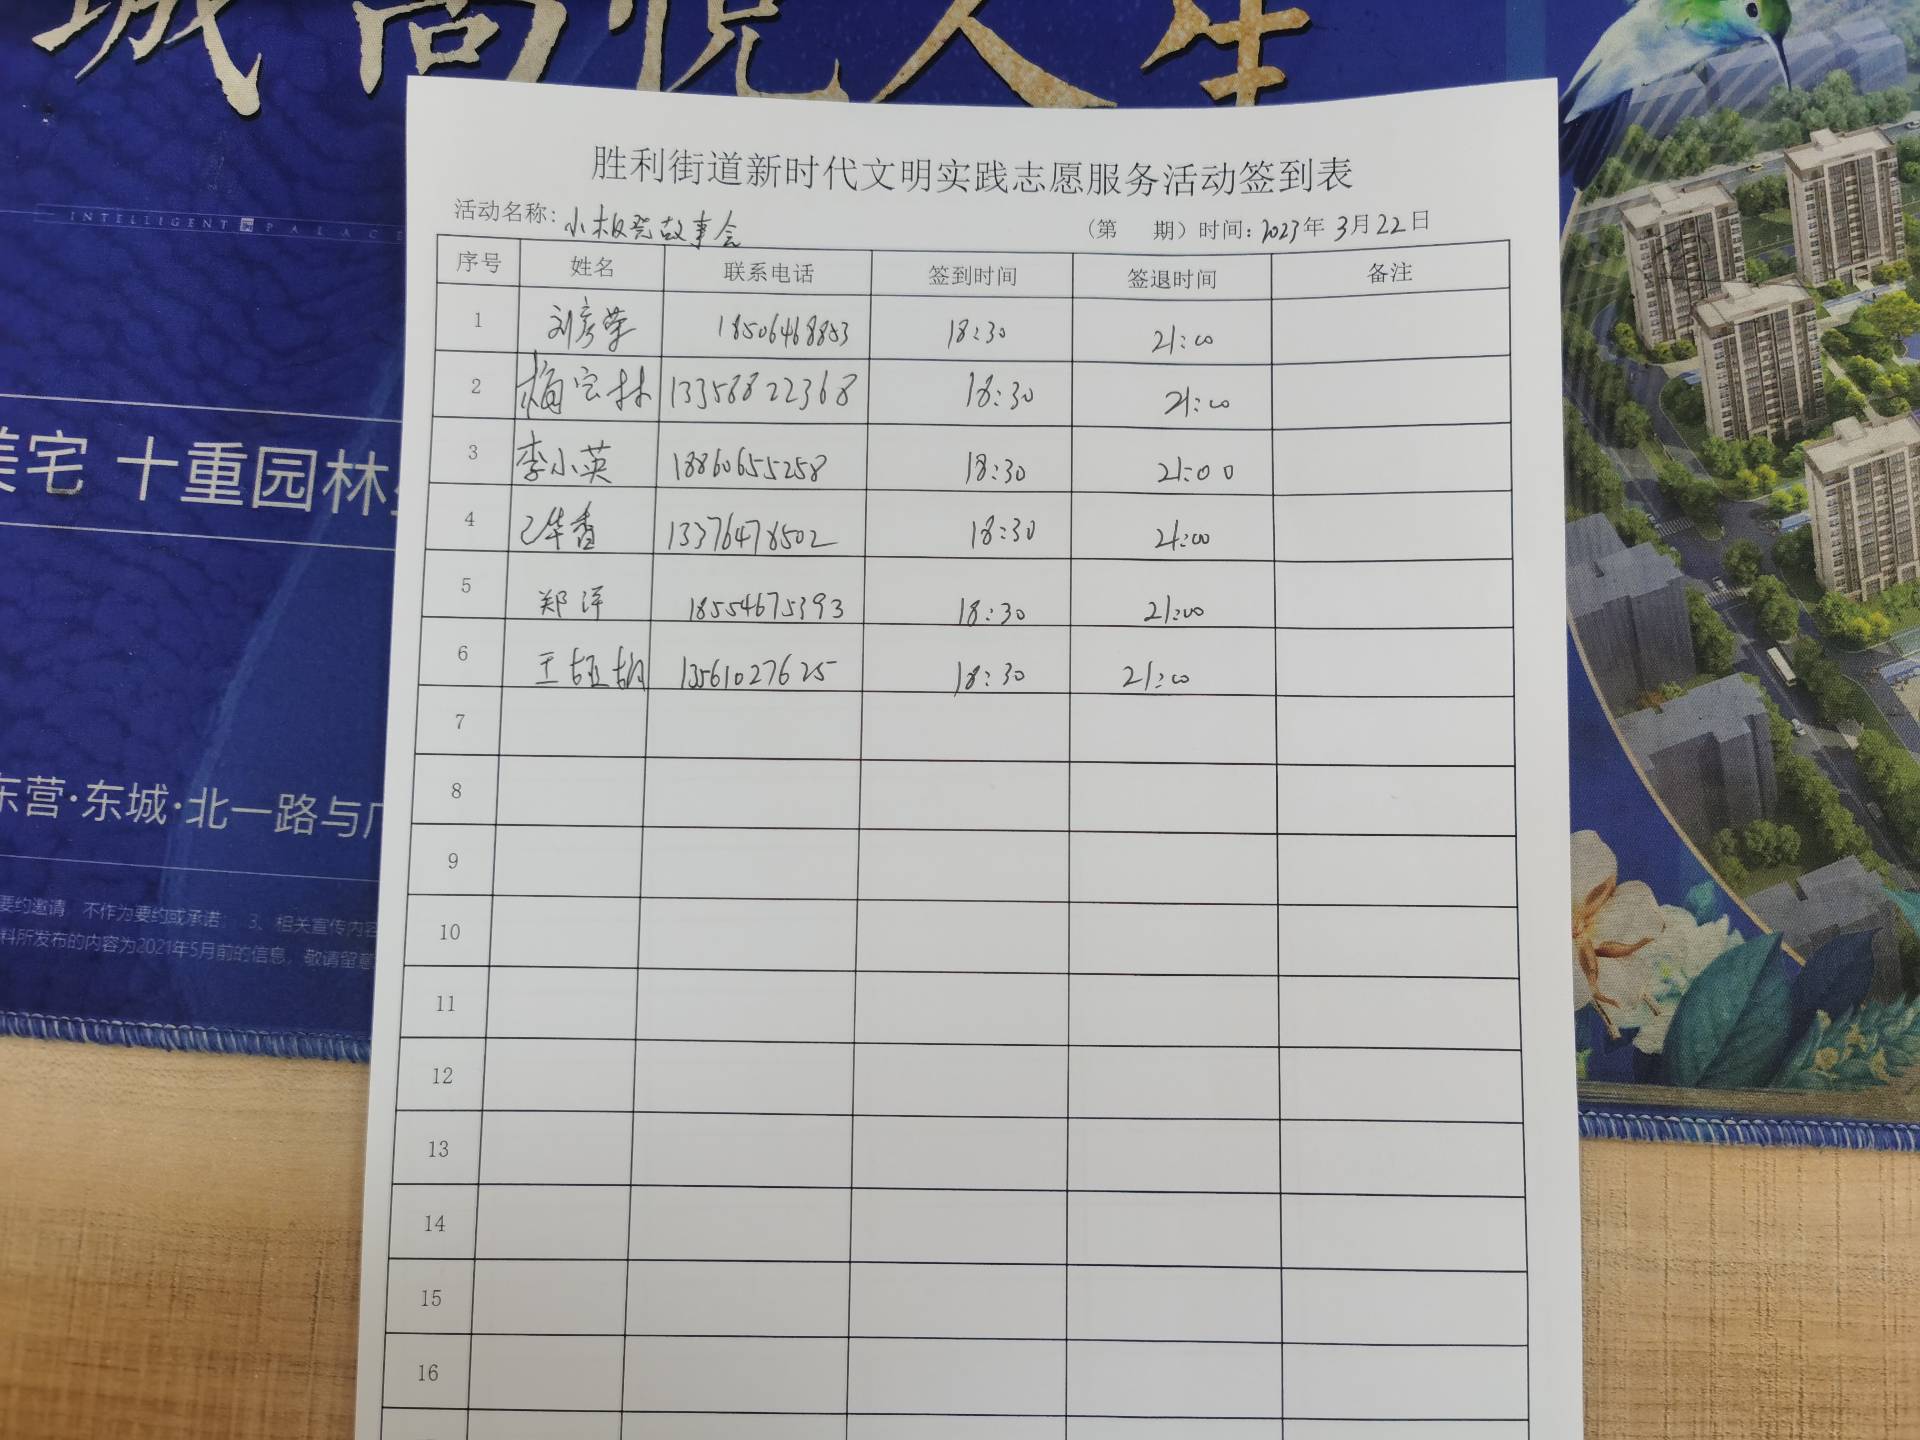 城高悦人生
INTELLIGENT PALACE
美宅 十重园林
东营·东城·北一路与广
要约邀请 不作为要约或承诺; 3、相关宣传内容
料所发布的内容为2021年5月前的信息，敬请留意
胜利街道新时代文明实践志愿服务活动签到表
活动名称：小板凳故事会 （第 期）时间：2023年3月22日
序号 姓名 联系电话 签到时间 签退时间 备注
1 刘彦荣 18506468853 18:30 21:00
2 梅宝林 13358822368 18:30 21:00
3 李小英 18860655258 18:30 21:00
4 华香 13376478502 18:30 21:00
5 郑洋 18554675393 18:30 21:00
6 王 13561027625 18:30 21:00
7
8
9
10
11
12
13
14
15
16